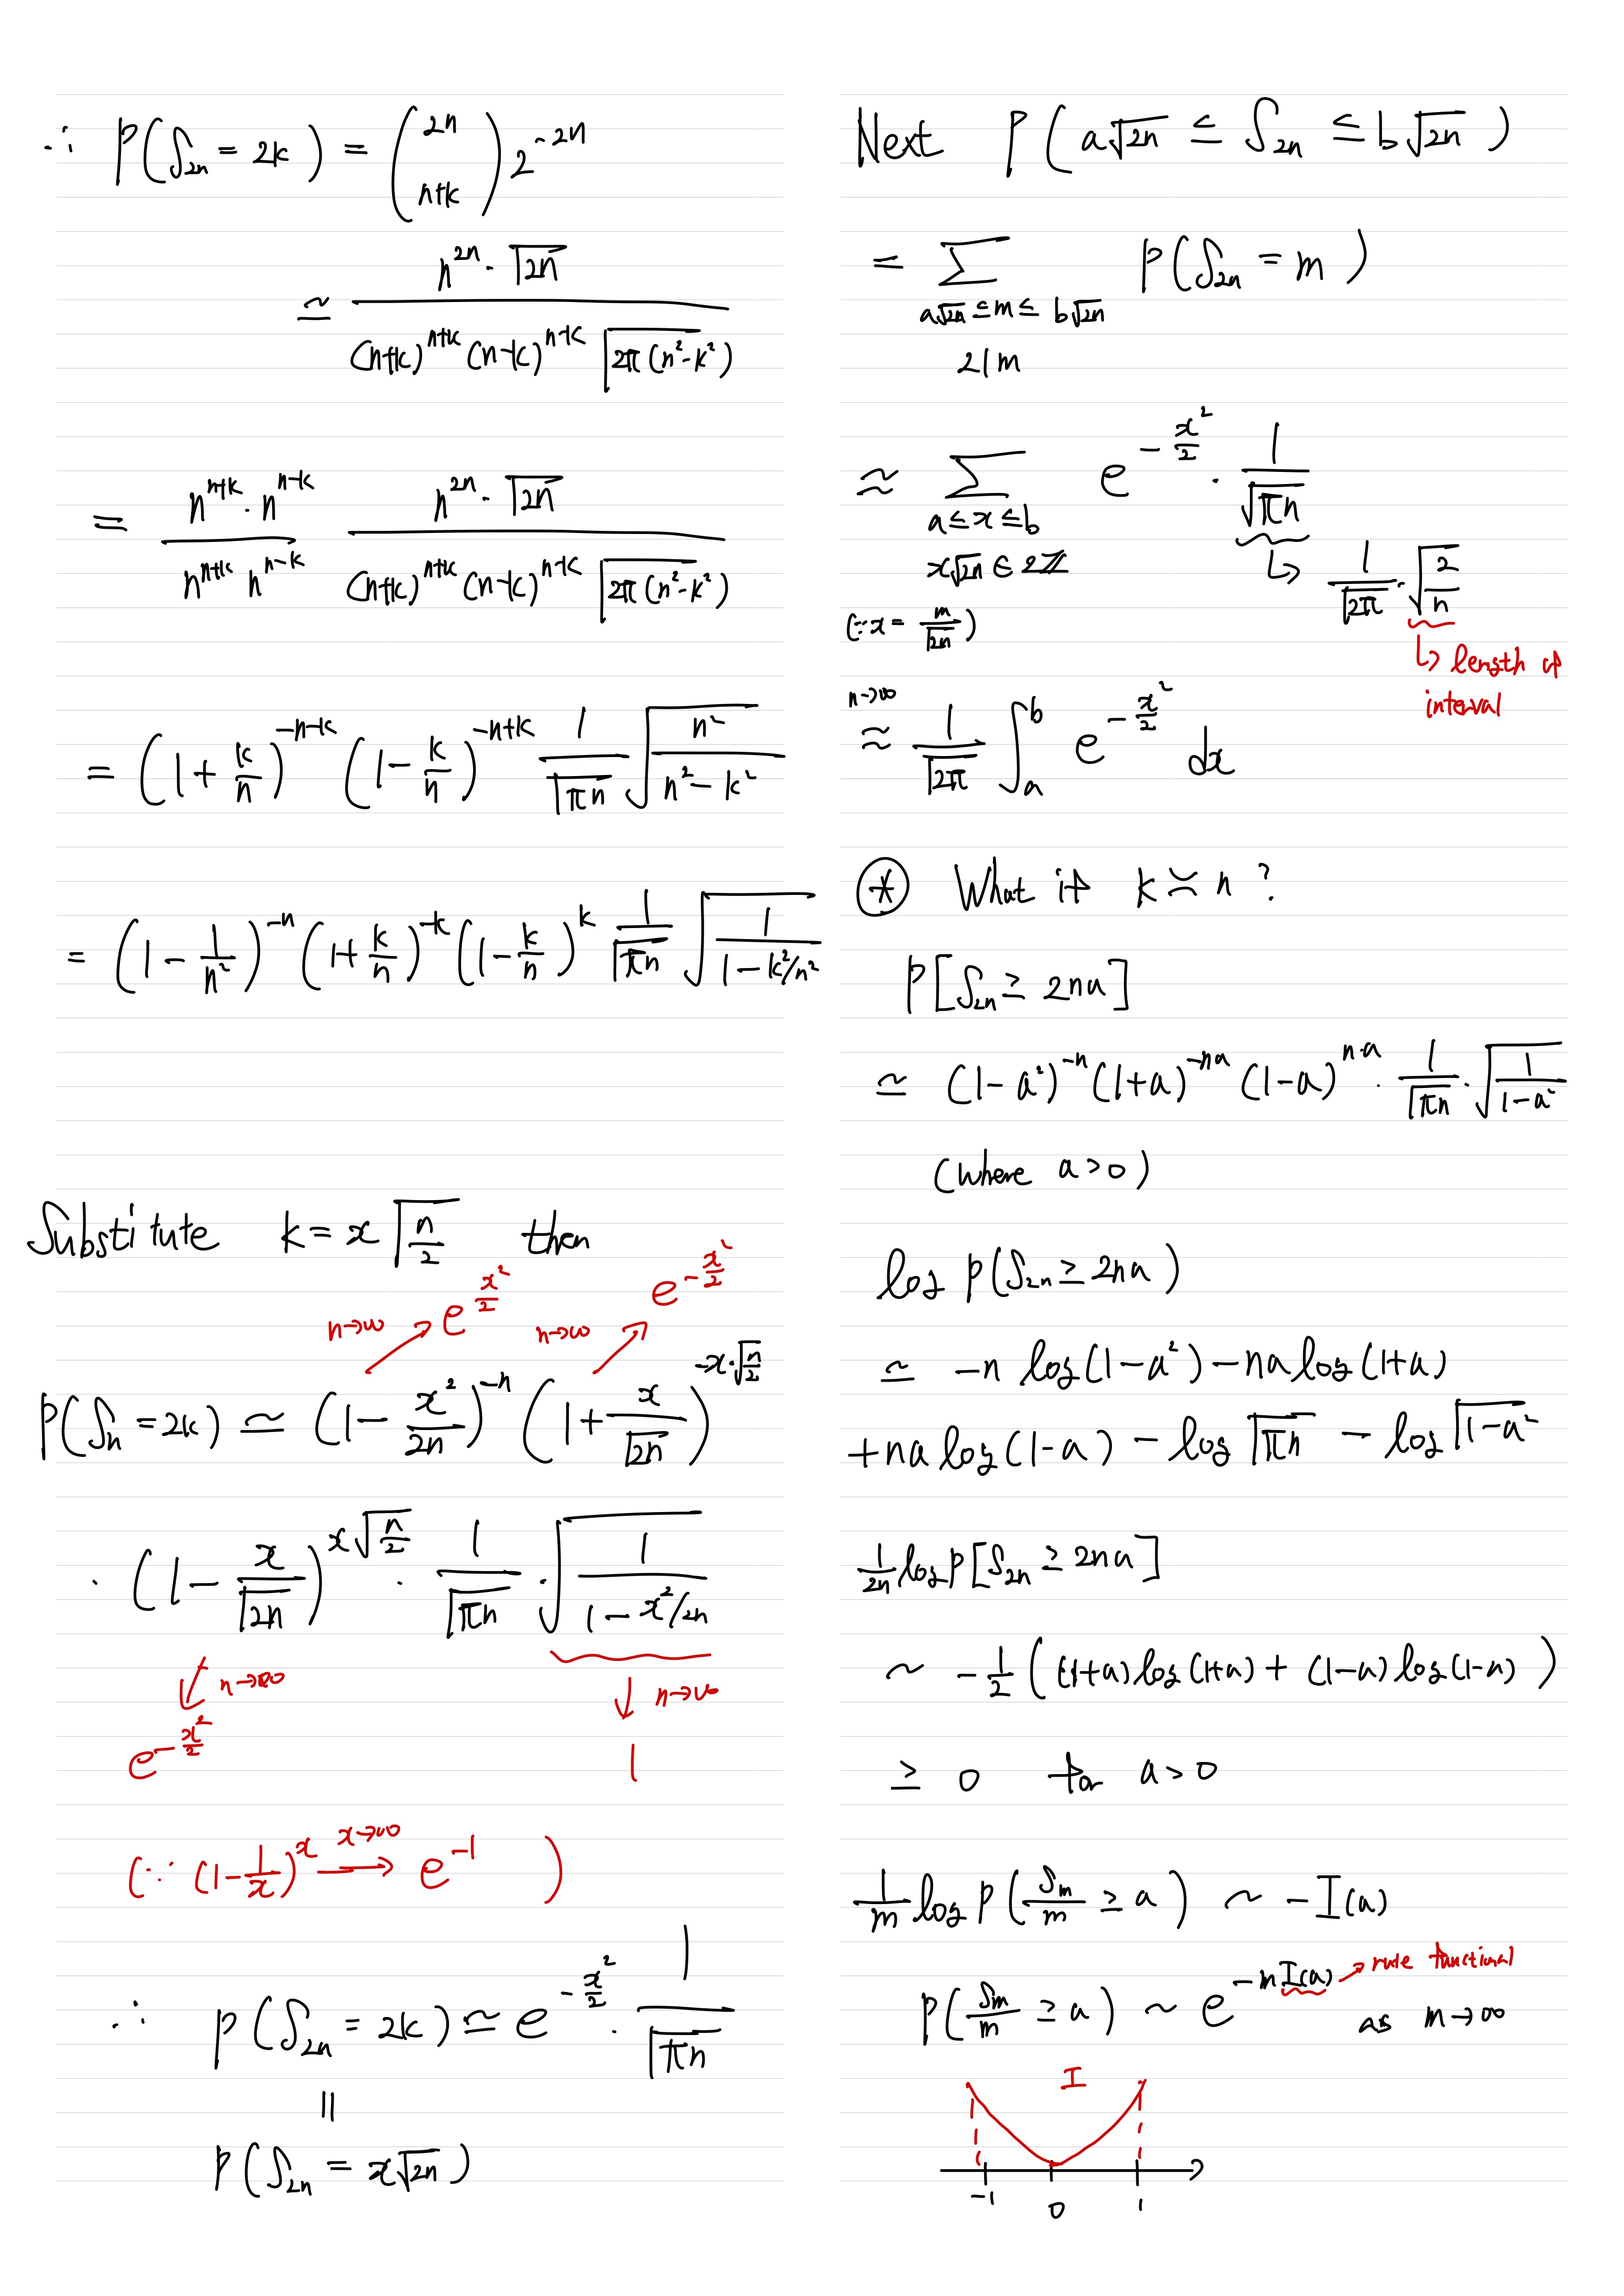 ∴ P(S_{2n} = 2k) = \binom{2n}{n+k} 2^{-2n}
≃ \frac{n^{2n} · \sqrt{2n}}{(n+k)^{n+k} (n-k)^{n-k} \sqrt{2π(n²-k²)}}
= \frac{n^{n+k} · n^{n-k}}{n^{n+k} n^{n-k}} \frac{n^{2n} · \sqrt{2n}}{(n+k)^{n+k} (n-k)^{n-k} \sqrt{2π(n²-k²)}}
= (1 + \frac{k}{n})^{-n-k} (1 - \frac{k}{n})^{-n+k} \frac{1}{\sqrt{πn}} \sqrt{\frac{n²}{n²-k²}}
= (1 - \frac{1}{n²})^{-n} (1 + \frac{k}{n})^{-k} (1 - \frac{k}{n})^{k} \frac{1}{\sqrt{πn}} \sqrt{\frac{1}{1-k²/n²}}
Substitute k = x \sqrt{\frac{n}{2}} then
n→∞ e^{\frac{x²}{2}} n→∞ e^{-\frac{x²}{2}}
P(S_n = 2k) ≃ (1 - \frac{x²}{2n})^{-n} (1 + \frac{x}{\sqrt{2n}})^{-x·\sqrt{\frac{n}{2}}}
· (1 - \frac{x}{\sqrt{2n}})^{x\sqrt{\frac{n}{2}}} · \frac{1}{\sqrt{πn}} · \sqrt{\frac{1}{1-x²/2n}}
↙ n→∞ ↓ n→∞
e^{-\frac{x²}{2}} 1
(∵ (1-\frac{1}{x})^x \xrightarrow{x→∞} e^{-1} )
∴ P(S_{2n} = 2k) ≃ e^{-\frac{x²}{2}} · \frac{1}{\sqrt{πn}}
||
P(S_{2n} = x\sqrt{2n})
Next P(a\sqrt{2n} ≤ S_{2n} ≤ b\sqrt{2n})
= \sum_{a\sqrt{2n} ≤ m ≤ b\sqrt{2n}, 2|m} P(S_{2n} = m)
≈ \sum_{a≤x≤b, x\sqrt{2n} ∈ 2ℤ} e^{-\frac{x²}{2}} · \frac{1}{\sqrt{πn}}
↳ \frac{1}{\sqrt{2π}} · \sqrt{\frac{2}{n}}
(∵ x = \frac{m}{\sqrt{2n}})
↳ length of
interval
n→∞
≈ \frac{1}{\sqrt{2π}} \int_a^b e^{-\frac{x²}{2}} dx
⊛ What if k ≍ n ?
P[S_{2n} ≥ 2na]
≃ (1-a²)^{-n} (1+a)^{-na} (1-a)^{n·a} · \frac{1}{\sqrt{πn}} · \sqrt{\frac{1}{1-a²}}
(where a>0)
log P(S_{2n} ≥ 2na)
≃ -n log(1-a²) - na log(1+a)
+ na log(1-a) - log\sqrt{πn} - log\sqrt{1-a²}
\frac{1}{2n} log P[S_{2n} ≥ 2na]
~ -\frac{1}{2} ((1+a) log(1+a) + (1-a) log(1-a))
≥ 0 for a>0
\frac{1}{m} log P(\frac{S_m}{m} ≥ a) ~ -I(a)
P(\frac{S_m}{m} ≥ a) ~ e^{-mI(a)} → rate functional
as m→∞
I
-1 0 1